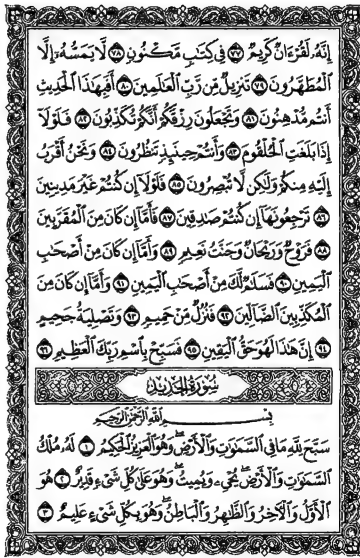 إِنَّهُۥ لَقُرْءَانٌ كَرِيمٌ ٧٧ فِي كِتَٰبٍ مَّكْنُونٍ ٧٨ لَّا يَمَسُّهُۥٓ إِلَّا
ٱلْمُطَهَّرُونَ ٧٩ تَنزِيلٌ مِّن رَّبِّ ٱلْعَٰلَمِينَ ٨٠ أَفَبِهَٰذَا ٱلْحَدِيثِ
أَنتُم مُّدْهِنُونَ ٨١ وَتَجْعَلُونَ رِزْقَكُمْ أَنَّكُمْ تُكَذِّبُونَ ٨٢ فَلَوْلَآ
إِذَا بَلَغَتِ ٱلْحُلْقُومَ ٨٣ وَأَنتُمْ حِينَئِذٍ تَنظُرُونَ ٨٤ وَنَحْنُ أَقْرَبُ
إِلَيْهِ مِنكُمْ وَلَٰكِن لَّا تُبْصِرُونَ ٨٥ فَلَوْلَآ إِن كُنتُمْ غَيْرَ مَدِينِينَ
٨٦ تَرْجِعُونَهَآ إِن كُنتُمْ صَٰدِقِينَ ٨٧ فَأَمَّآ إِن كَانَ مِنَ ٱلْمُقَرَّبِينَ
٨٨ فَرَوْحٌ وَرَيْحَانٌ وَجَنَّتُ نَعِيمٍ ٨٩ وَأَمَّآ إِن كَانَ مِنْ أَصْحَٰبِ
ٱلْيَمِينِ ٩٠ فَسَلَٰمٌ لَّكَ مِنْ أَصْحَٰبِ ٱلْيَمِينِ ٩١ وَأَمَّآ إِن كَانَ مِنَ
ٱلْمُكَذِّبِينَ ٱلضَّآلِّينَ ٩٢ فَنُزُلٌ مِّنْ حَمِيمٍ ٩٣ وَتَصْلِيَةُ جَحِيمٍ
٩٤ إِنَّ هَٰذَا لَهُوَ حَقُّ ٱلْيَقِينِ ٩٥ فَسَبِّحْ بِٱسْمِ رَبِّكَ ٱلْعَظِيمِ ٩٦
سُورَةُ الحَدِيدِ
بِسْمِ ٱللَّهِ ٱلرَّحْمَٰنِ ٱلرَّحِيمِ
سَبَّحَ لِلَّهِ مَا فِي ٱلسَّمَٰوَٰتِ وَٱلْأَرْضِ ۖ وَهُوَ ٱلْعَزِيزُ ٱلْحَكِيمُ ١ لَهُۥ مُلْكُ
ٱلسَّمَٰوَٰتِ وَٱلْأَرْضِ ۖ يُحْىِۦ وَيُمِيتُ ۖ وَهُوَ عَلَىٰ كُلِّ شَىْءٍ قَدِيرٌ ٢ هُوَ
ٱلْأَوَّلُ وَٱلْءَاخِرُ وَٱلظَّٰهِرُ وَٱلْبَاطِنُ ۖ وَهُوَ بِكُلِّ شَىْءٍ عَلِيمٌ ٣